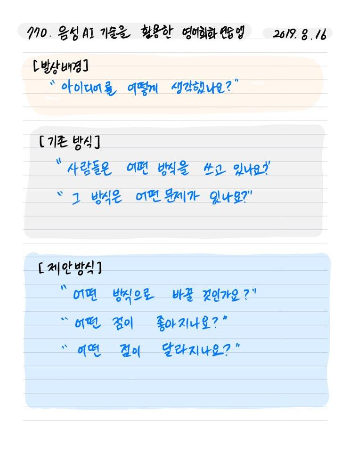 770. 음성 AI 기술을 활용한 영어회화 연습 앱 2019. 8. 16
[발상배경]
"아이디어를 어떻게 생각했나요?"
[기존 방식]
"사람들은 어떤 방식을 쓰고 있나요?"
"그 방식은 어떤 문제가 있나요?"
[제안방식]
"어떤 방식으로 바꿀 것인가요?"
"어떤 점이 좋아지나요?"
"어떤 점이 달라지나요?"